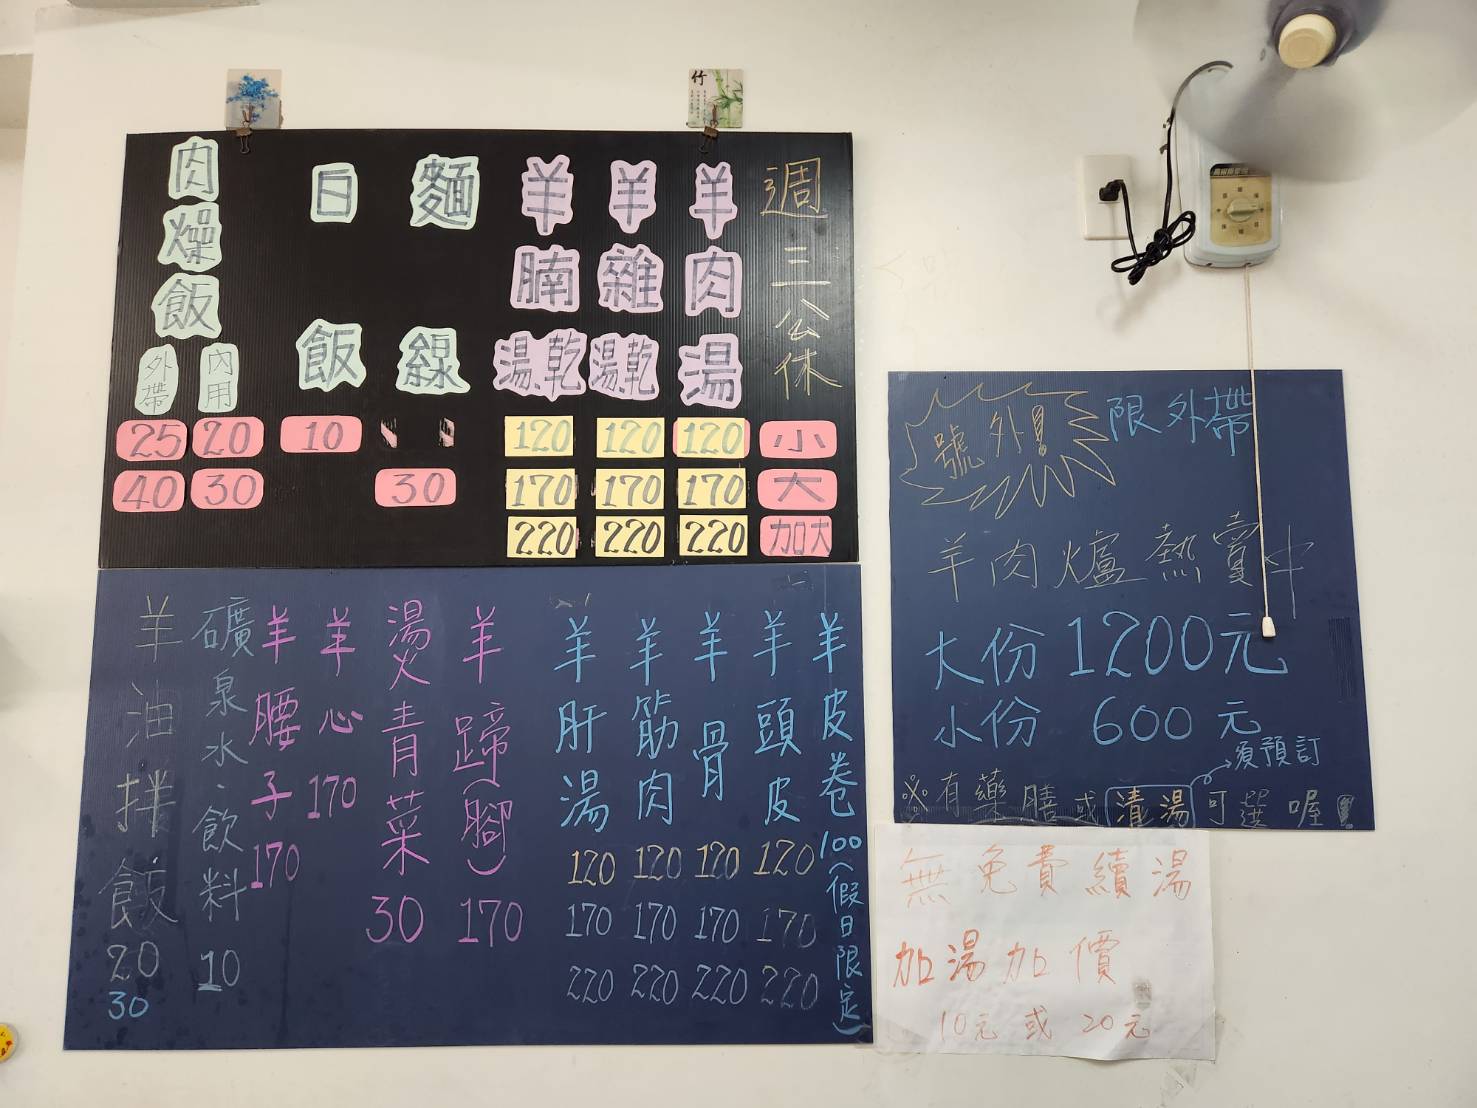 竹
週三公休
小
大
加大
羊肉湯
120
170
220
羊雜湯乾
120
170
220
羊腩湯乾
120
170
220
麵線
30
白飯
10
肉燥飯
內用
20
30
外帶
25
40
羊皮卷100(假日限定)
羊頭皮
120
170
220
羊骨
120
170
220
羊筋肉
120
170
220
羊肝湯
120
170
220
羊蹄(腳)170
燙青菜30
羊心170
羊腰子170
礦泉水.飲料10
羊油拌飯
20
30
號外!
限外帶
羊肉爐熱賣中
大份1200元
小份 600元
須預訂
※有藥膳或清湯可選喔!
無免費續湯
加湯加價
10元或20元